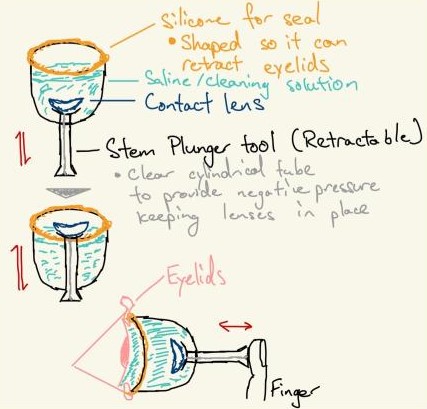 Silicone for seal
• Shaped so it can
retract eyelids
Saline/cleaning solution
Contact lens
Stem Plunger tool (Retractable)
• Clear cylindrical tube
to provide negative pressure
keeping lenses in place
Eyelids
Finger